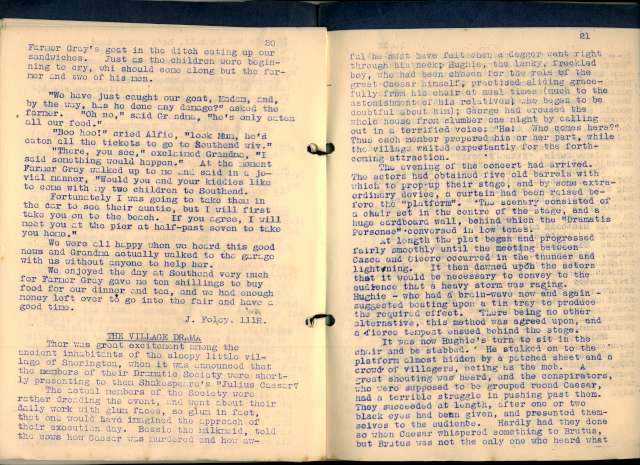 20
Farmer Gray's goat in the ditch eating up our
sandwiches. Just as the children were begin-
ning to cry, whi should come along but the far-
mer and two of his men.
"We have just caught our goat, Madam, and,
by the way, has he done any damage?" asked the
farmer. "Oh no," said Grandma, "he's only eaten
all our food."
"Boo hoo!" cried Alfie, "look Mum, he'd
eaten all the tickets go to Southend wiv."
"There, you see," exclaimed Grandma, "I
said something would happen." At the moment
Farmer Gray walked up to me and said in a jo-
vial manner, "Would you and your kiddies like
to come with my two children to Southend.
Fortunately I was going to take them in
the car to see their auntie, but I will first
take you on to the beach. If you agree, I will
meet you at the pier at half-past seven to take
you home."
We were all happy when we heard this good
news and Grandma actually walked to the garage
with us without anyone to help her.
We enjoyed the day at Southend very much
for Farmer Gray gave me ten shillings to buy
food for our dinner and tea, and we had enough
money left over to go into the fair and have a
good time.
J. Foley. 111R.
THE VILLAGE DRAMA
Ther was great excitement among the
ancient inhabitants of the sleepy little vil-
lage of Smorington, when it was announced that
the members of their Dramatic Society were short-
ly presenting to them Shakespeare's "Julius Caesar?
The actual members of the Society were
rather dreading the event, and went about their
daily work with glum faces, so glum in fact,
that one would have imagined the approach of
their execution day. Bessie the milkmaid, told
the cows how Caesar was murdered and how aw-
21
ful he must have felt when a dagger went right
through his neck; Hughie, the lanky, freckled
boy, who had been chosen for the role of the
great Caesar himself, practised sliding grace-
fully from his chair at meal times (much to the
astonishment of his relatives who began to be
doubtful about him); George had aroused the
whole house from slumber one night by calling
out in a terrified voice, "Ha! Who comes here?"
Thus each member prepared his or her part, while
the village waited expectantly for the forth-
coming attraction.
The evening of the concert had arrived.
The actors had obtained five old barrels with
which to prop up their stage, and by some extra-
ordinary device, a curtain had been raised be-
fore the "platform". The scenery consisted of
a chair set in the centre of the stage, and a
huge cardboard wall, behind which the "Dramatis
Personae" conversed in low tones.
At length the play began and progressed
fairly smoothly until the meeting between
Casca and Cicero occurred in the thunder and
lightening. It then dawned upon the actors
that it would be necessary to convey to the
audience that a heavy storm was raging.
Hughie - who had a brain-wave now and again -
suggested beating upon a tin tray to produce
the required effect. There being no other
alternative, this method was agreed upon, and
a fierce tempest ensued behind the stage.
It was now Hughie's turn to sit in the
chair and be stabbed. He stalked on to the
platform almost hidden by a patched sheet and a
crowd of villagers, acting as the mob. A
great shouting was heard, and the conspirators,
who were supposed to be grouped round Caesar,
had a terrible struggle in pushing past them.
They succeeded at length, after one or two
black eyes had been given, and presented them-
selves to the audience. Hardly had they done
so when Caesar whispered something to Brutus,
but Brutus was not the only one who heard what